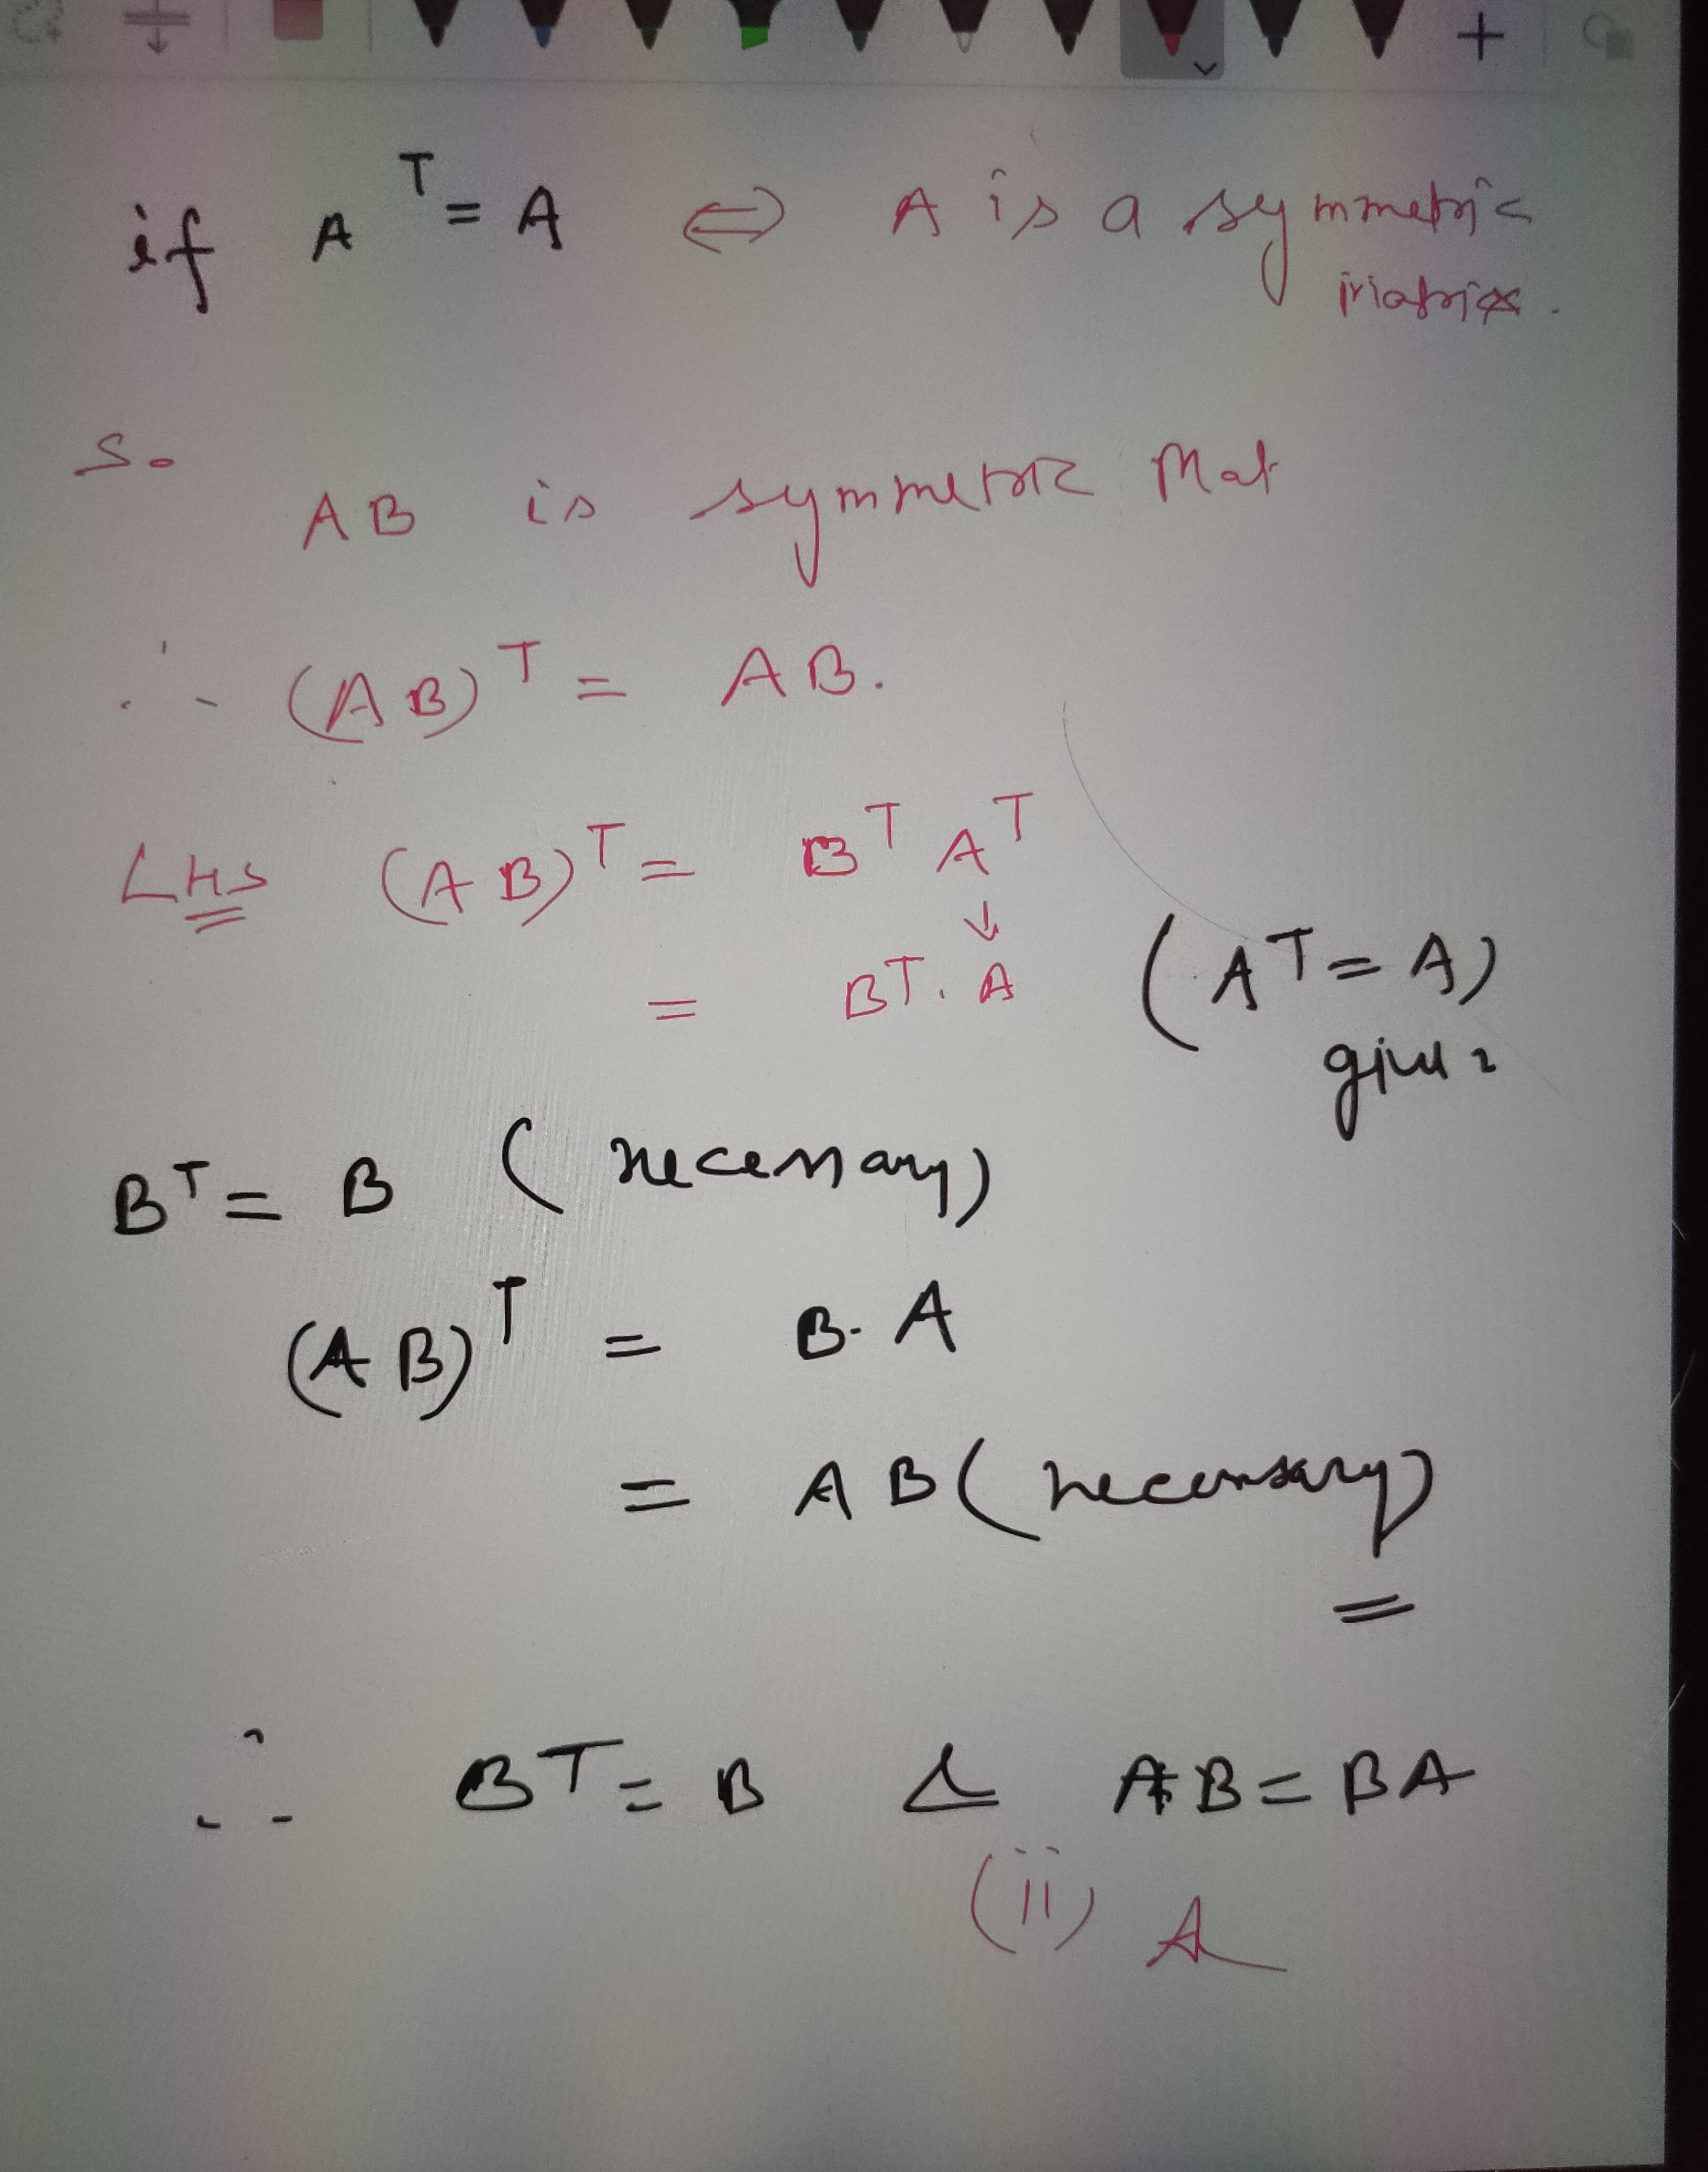 if A^T = A ⇔ A is a symmetric
matrix.
So
AB is symmetric Mat
∴ (AB)^T = AB.
LHS (AB)^T = B^T A^T
↓
= B^T . A (A^T = A)
given
B^T = B (necessary)
(AB)^T = B. A
= AB (necessary)
∴ B^T = B & AB = BA
(ii) A